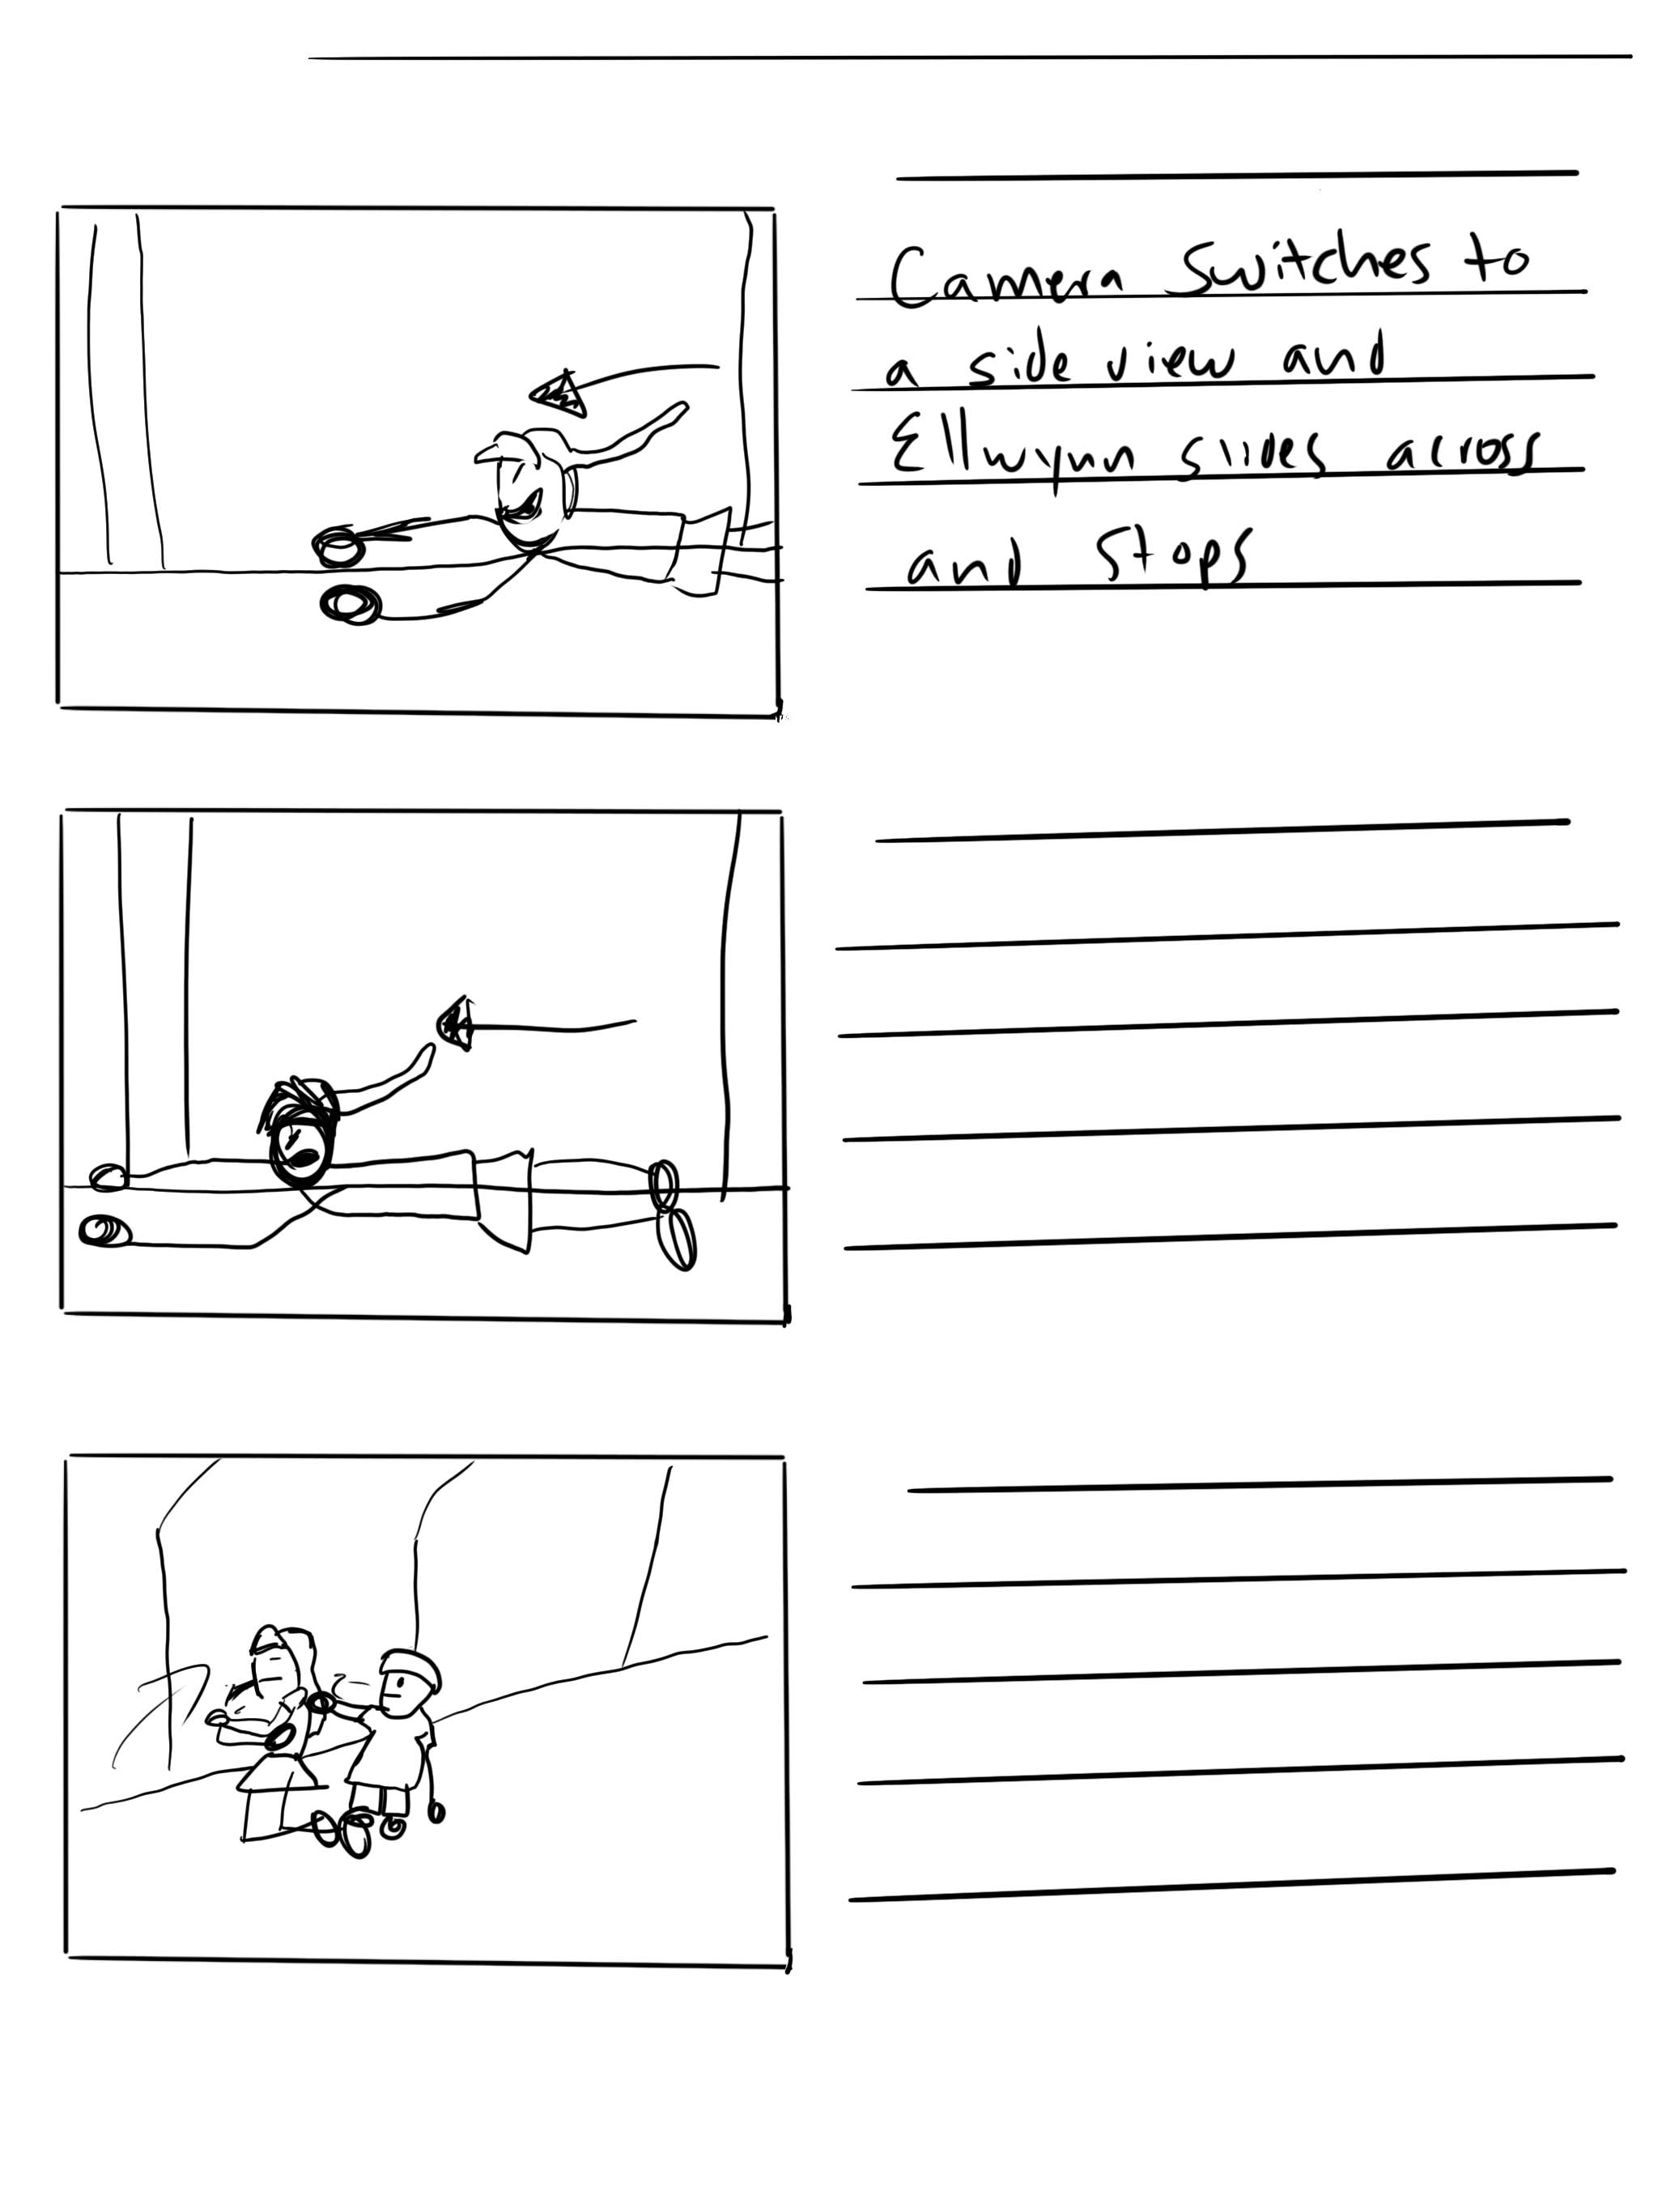 Camera switches to
a side view and
Ellwynn slides across
and stops